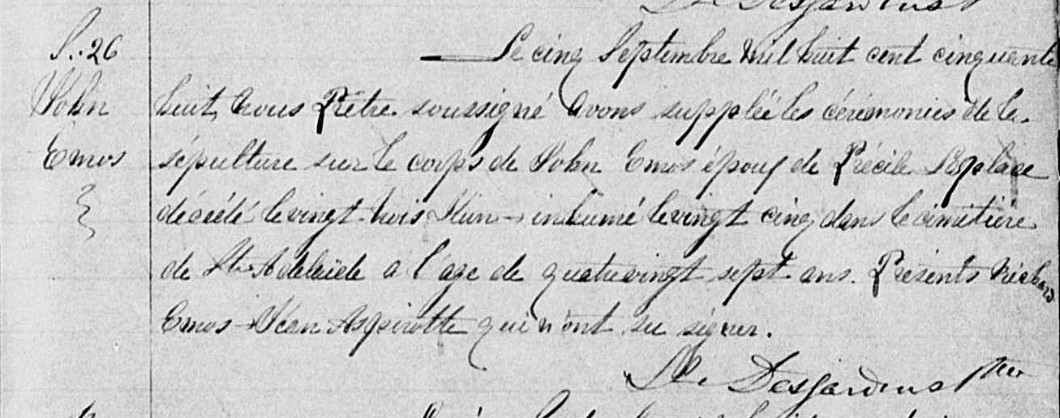 Desjardins Ptre
S. 26
John
Emos
Le cinq Septembre mil huit cent cinquante
huit, Nous Prêtre soussigné avons supplée les cérémonies de la
sépulture sur le corps de John Emos époux de Précile Laplace
décédé le vingt trois Juin inhumé le vingt cinq dans le cimetière
de Ste Adelaïde a l'age de quatrevingt sept ans. Présents Richard
Emos Jean Aspirotte qui n'ont su signer.
Desjardins Ptre